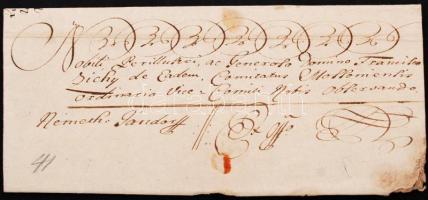 Nobili Perillustri, ac Generoso Domino Francisco
Zichy de Eadem, Comitatus Mosoniensis
Ordinario Vice-Comiti Aptis Observando
Németh: Jandorff
Ex Offo
41